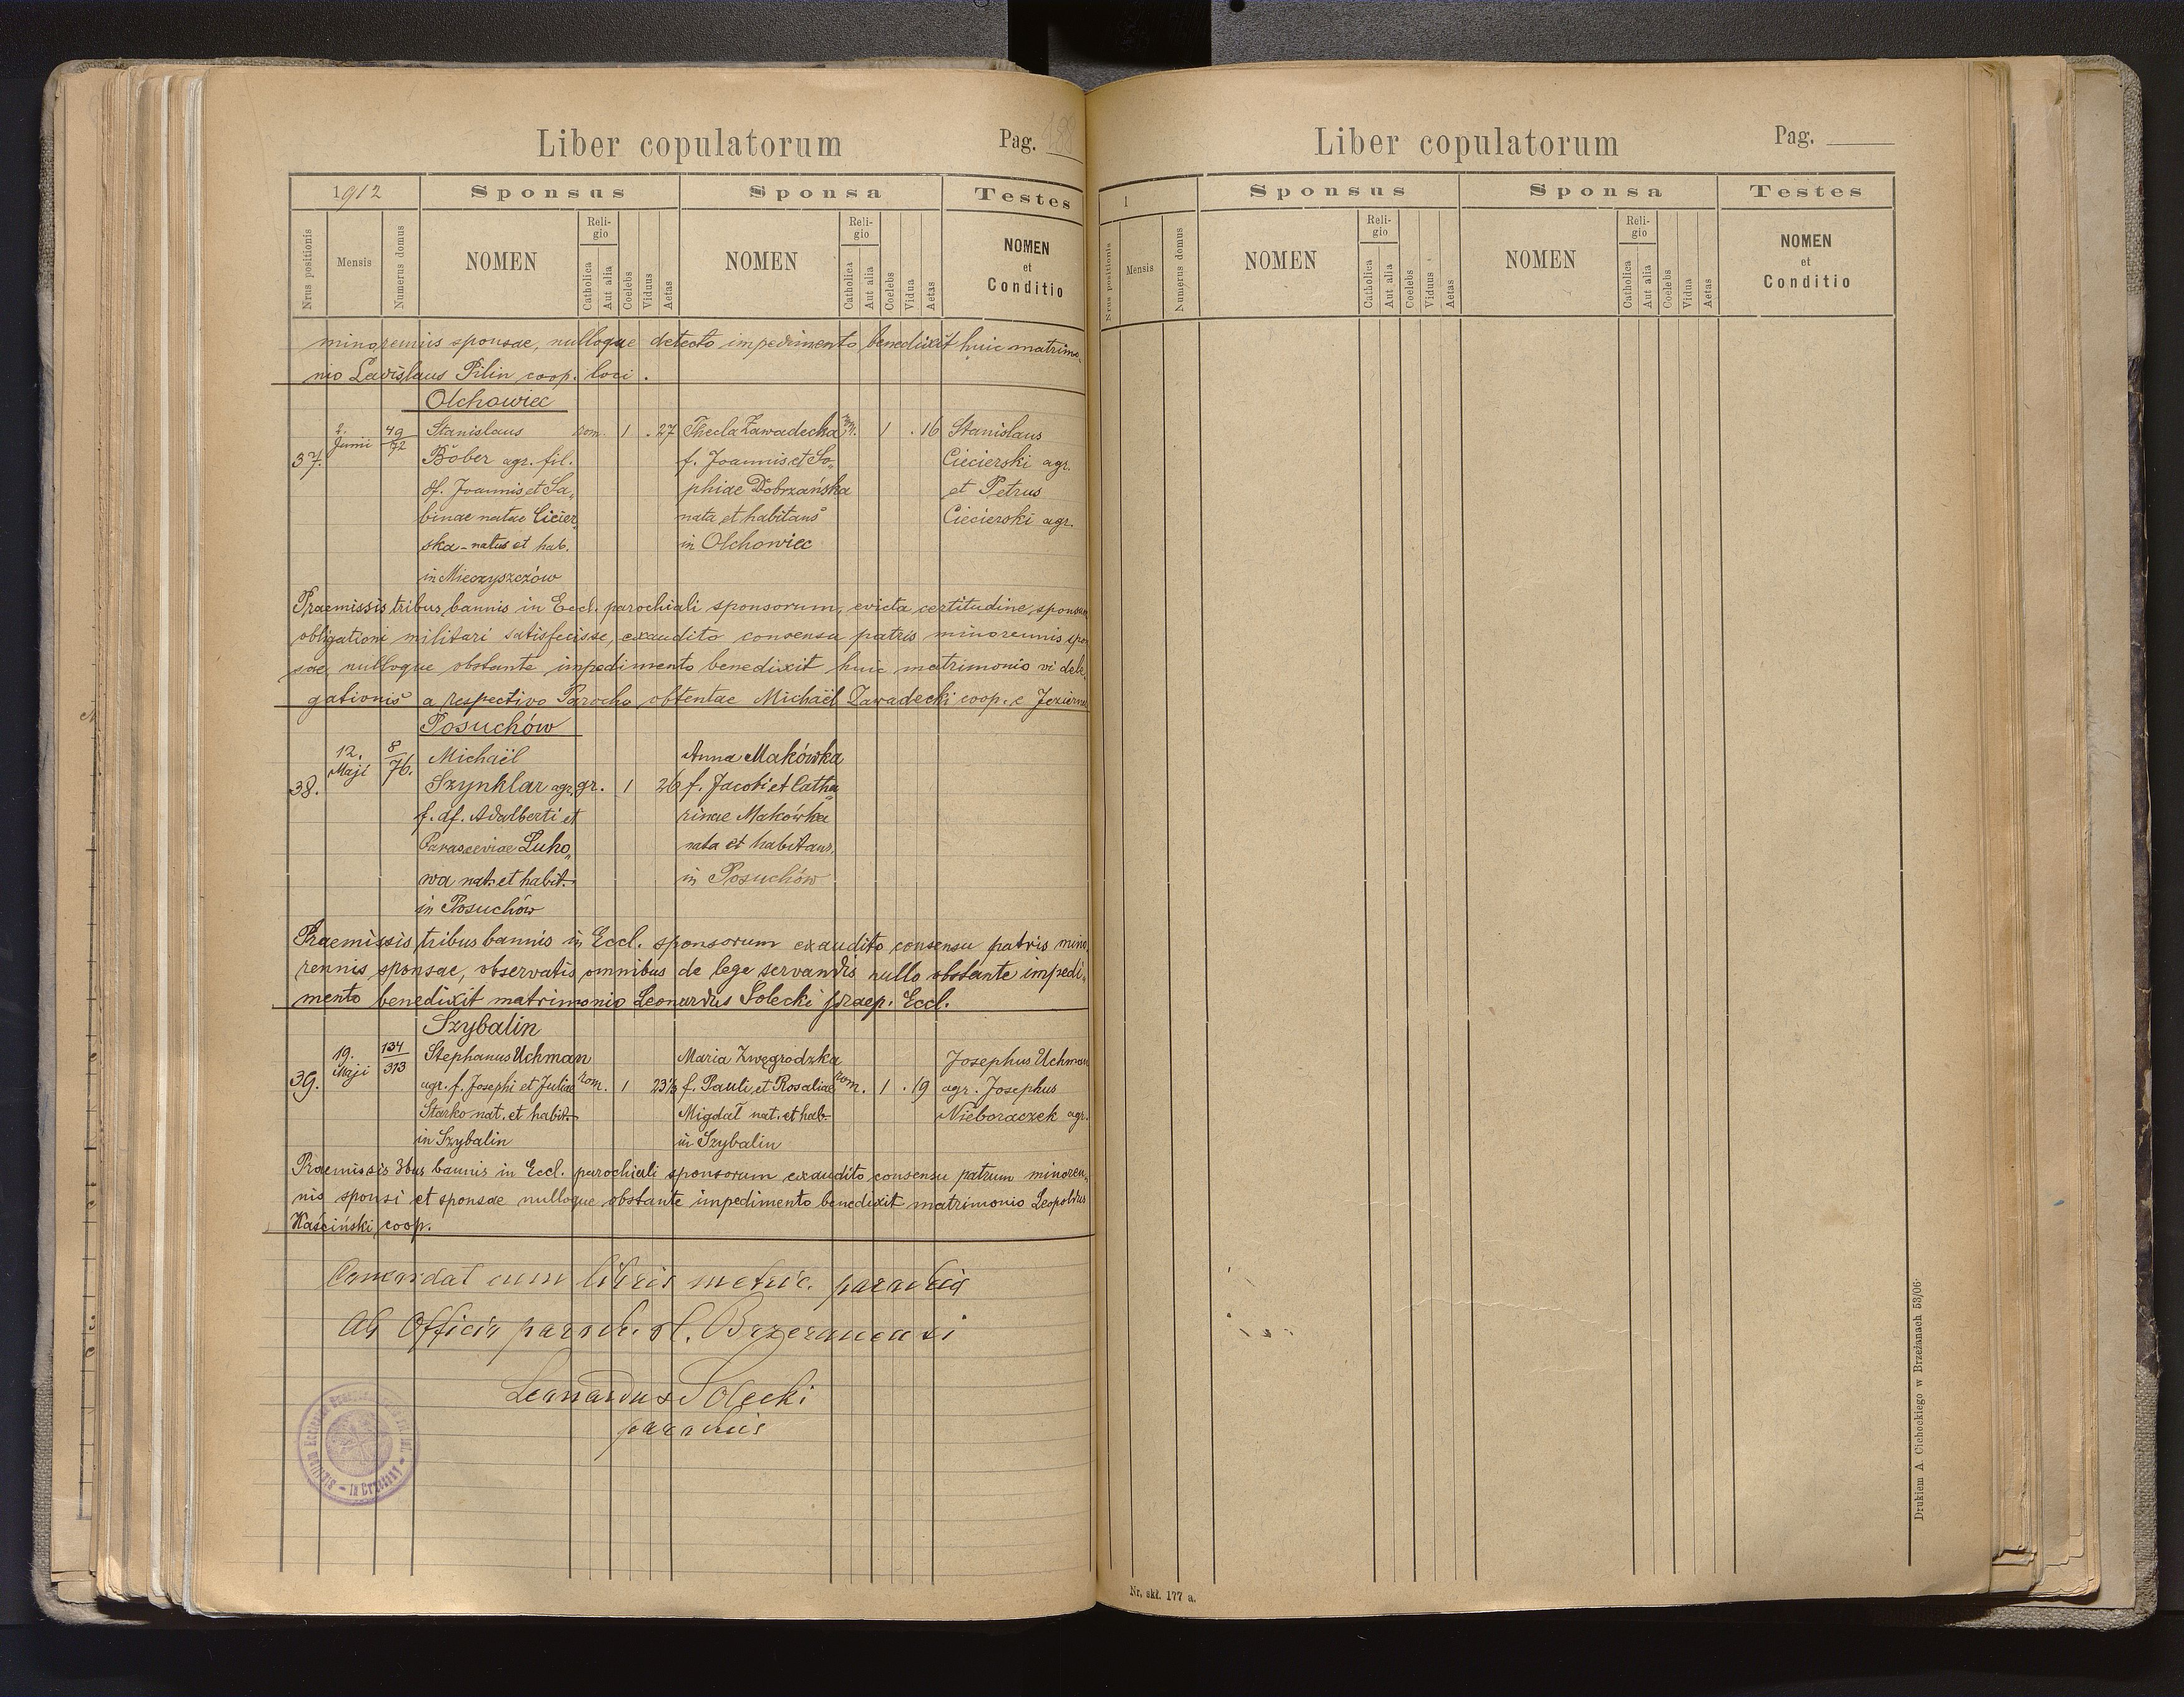 Liber copulatorum Pag. 188
1912 Sponsus Sponsa Testes
Nrus positionis Mensis Numerus domus NOMEN Religio Catholica Aut alia Coelebs Viduus Aetas NOMEN Religio Catholica Aut alia Coelebs Vidua Aetas NOMEN et Conditio
minorennis sponsae, nulloque detecto impedimento benedixit huic matrimo„
nio Ladislaus Pilin coop. loci.
Olchowiec
2. Junii 49/72 Stanislaus rom. 1 . 27 Thecla Zawadecka 1 . 16 Stanislaus
37. Bober agr. fil. f. Joannis et So„ Ciecierski agr.
df. Joannis et Sa„ phiae Dobrzańska et Petrus
binae natae Cicier„ nata et habitans Ciecierski agr.
ska - natus et hab. in Olchowiec
in Mieczyszczów
Praemissis tribus bannis in Eccl. parochiali sponsorum, evicta certitudine, sponsum
obligationi militari satisfecisse, exaudito consensu patris minorennis spon
sae, nulloque obstante impedimento benedixit huic matrimonio vi dele„
gationis a respectivo Parocho obtentae Michaël Zawadecki coop. e Jezierna
Posuchów
12. Maji 8/76. Michaël Anna Makówka
38. Szynklar agr. gr. 1 26 f. Jacobi et Catha„
f. df. Adalberti et rinae Makówka
Parasceviae Luho„ nata et habitans,
wa nat. et habit. in Posuchów
in Posuchów
Praemissis tribus bannis in Eccl. sponsorum exaudito consensu patris mino„
rennis sponsae, observatis omnibus de lege servandis nullo obstante impedi„
mento benedixit matrimonio Leonardus Solecki praep. Eccl.
Szybalin
19. Maji 134/313 Stephanus Uchman Maria Zwęgrodzka Josephus Uchman
39. agr. f. Josephi et Juliae rom. 1 23½ f. Pauli et Rosaliae rom. 1 . 19 agr. Josephus
Starko nat. et habit. Migdał nat. et hab. Nieboraczek agr.
in Szybalin in Szybalin
Praemissis 3bus bannis in Eccl. parochiali sponsorum exaudito consensu patrum minoren„
nis sponsi et sponsae nulloque obstante impedimento benedixit matrimonio Leopoldus
Kaściński coop.
Concordat cum libris metric. parochia
Ab Officio paroch. rl. Brzezanensi
Leonardus Solecki
parochus
Liber copulatorum Pag.
1 Sponsus Sponsa Testes
Nrus positionis Mensis Numerus domus NOMEN Religio Catholica Aut alia Coelebs Viduus Aetas NOMEN Religio Catholica Aut alia Coelebs Vidua Aetas NOMEN et Conditio
Drukiem A. Cichockiego w Brzeżanach 53/06.
Nr. skł. 177 a.